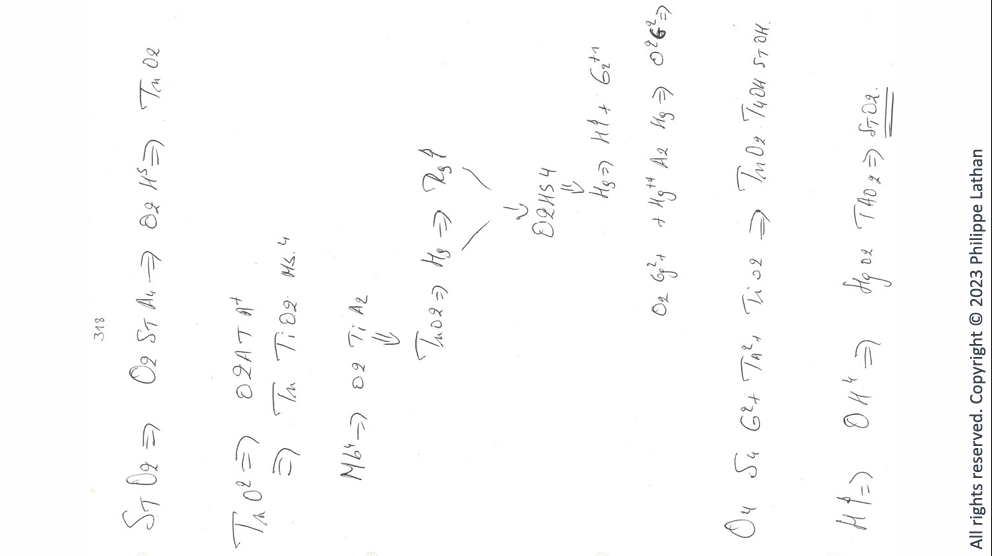 318
STO2 ⇒ O2 ST A4 ⇒ O2 H5 ⇒ TnO2
TnO2 ⇒ O2AT A+
⇒ Tn TiO2 Hs.4
Mb4 ⇒ O2 Ti A2
⇓
TnO2 ⇒ Hg ⇒ Rg↑
↓
O2HS4
⇓
Hg ⇒ H↑ + G2+1
O2 Gg2+ + Hg+4 A2 Hg ⇒ O2G2 ⇒
O4 S4 G2+ TA2+ TiO2 ⇒ TnO2 T4OH STOH.
H↑ ⇒ OH4 ⇒ HgO2 TAO2 ⇒ STO2.
All rights reserved. Copyright © 2023 Philippe Lathan